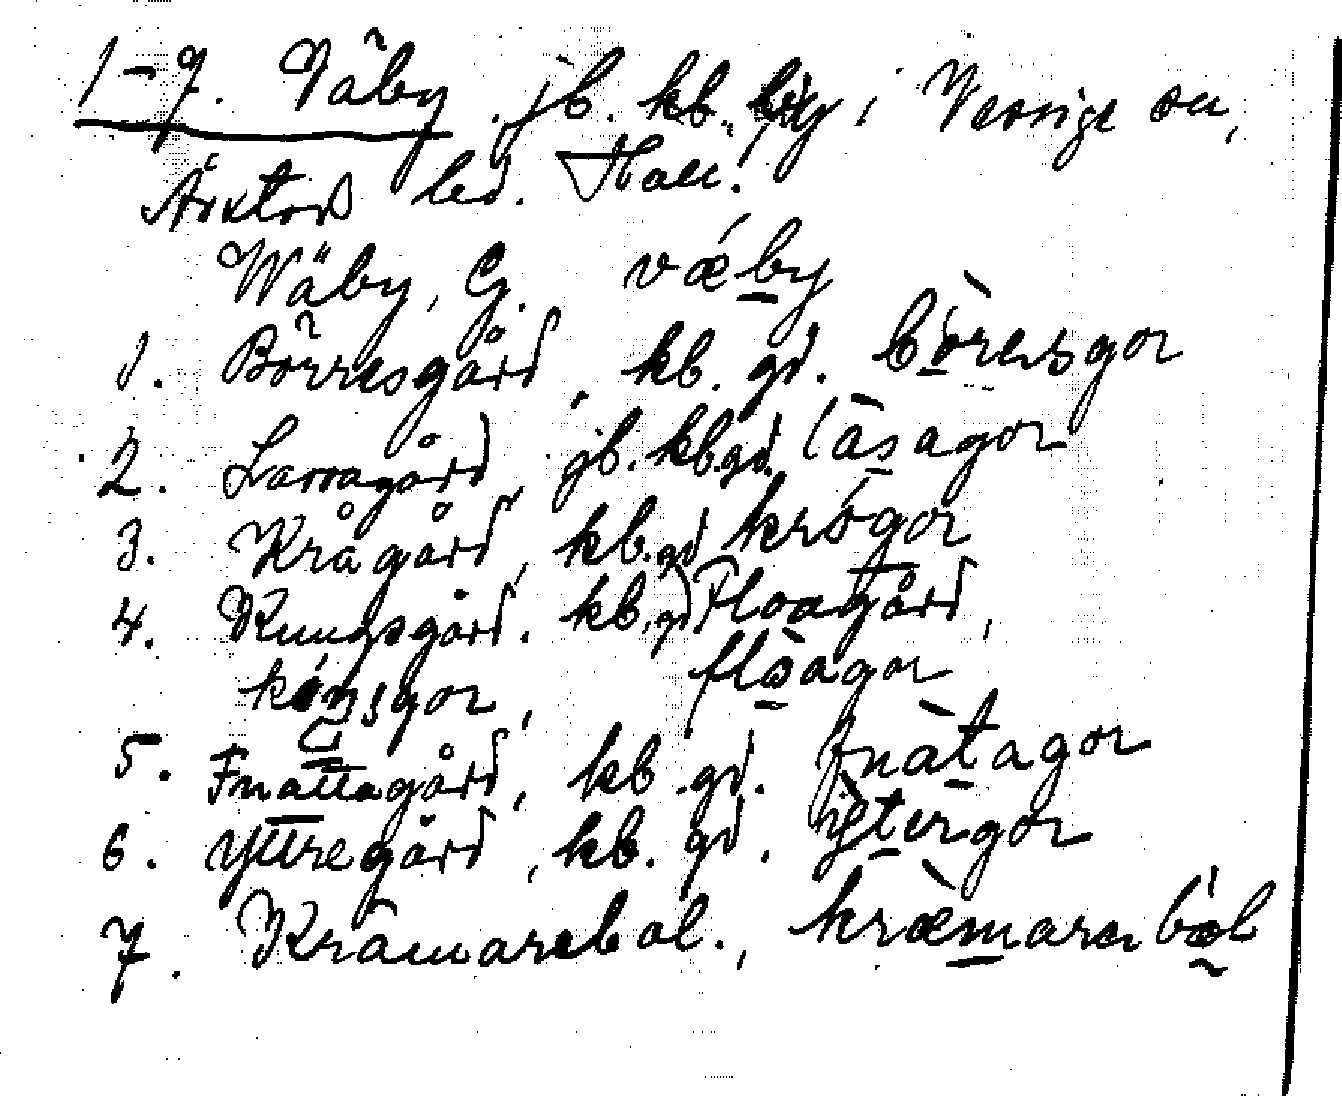 1-7. Väby, jb. kb. by i Vessige sn,
Årstad hd. Hall.
Wäby, G. vǽby
1. Börresgård, kb. gd. bòresgor
2. Larsagård, jb. kb. gd. làsagor
3. Krågård, kb. gd krógor
4. Kungsgård. kb. gd Floagård,
kóŋsgor, flòagor
5. Fnattagård, kb. gd. fnàtagor
6. Yttregård, kb. gd. ỳtergor
7. Krämarebol., kræ̀marebol